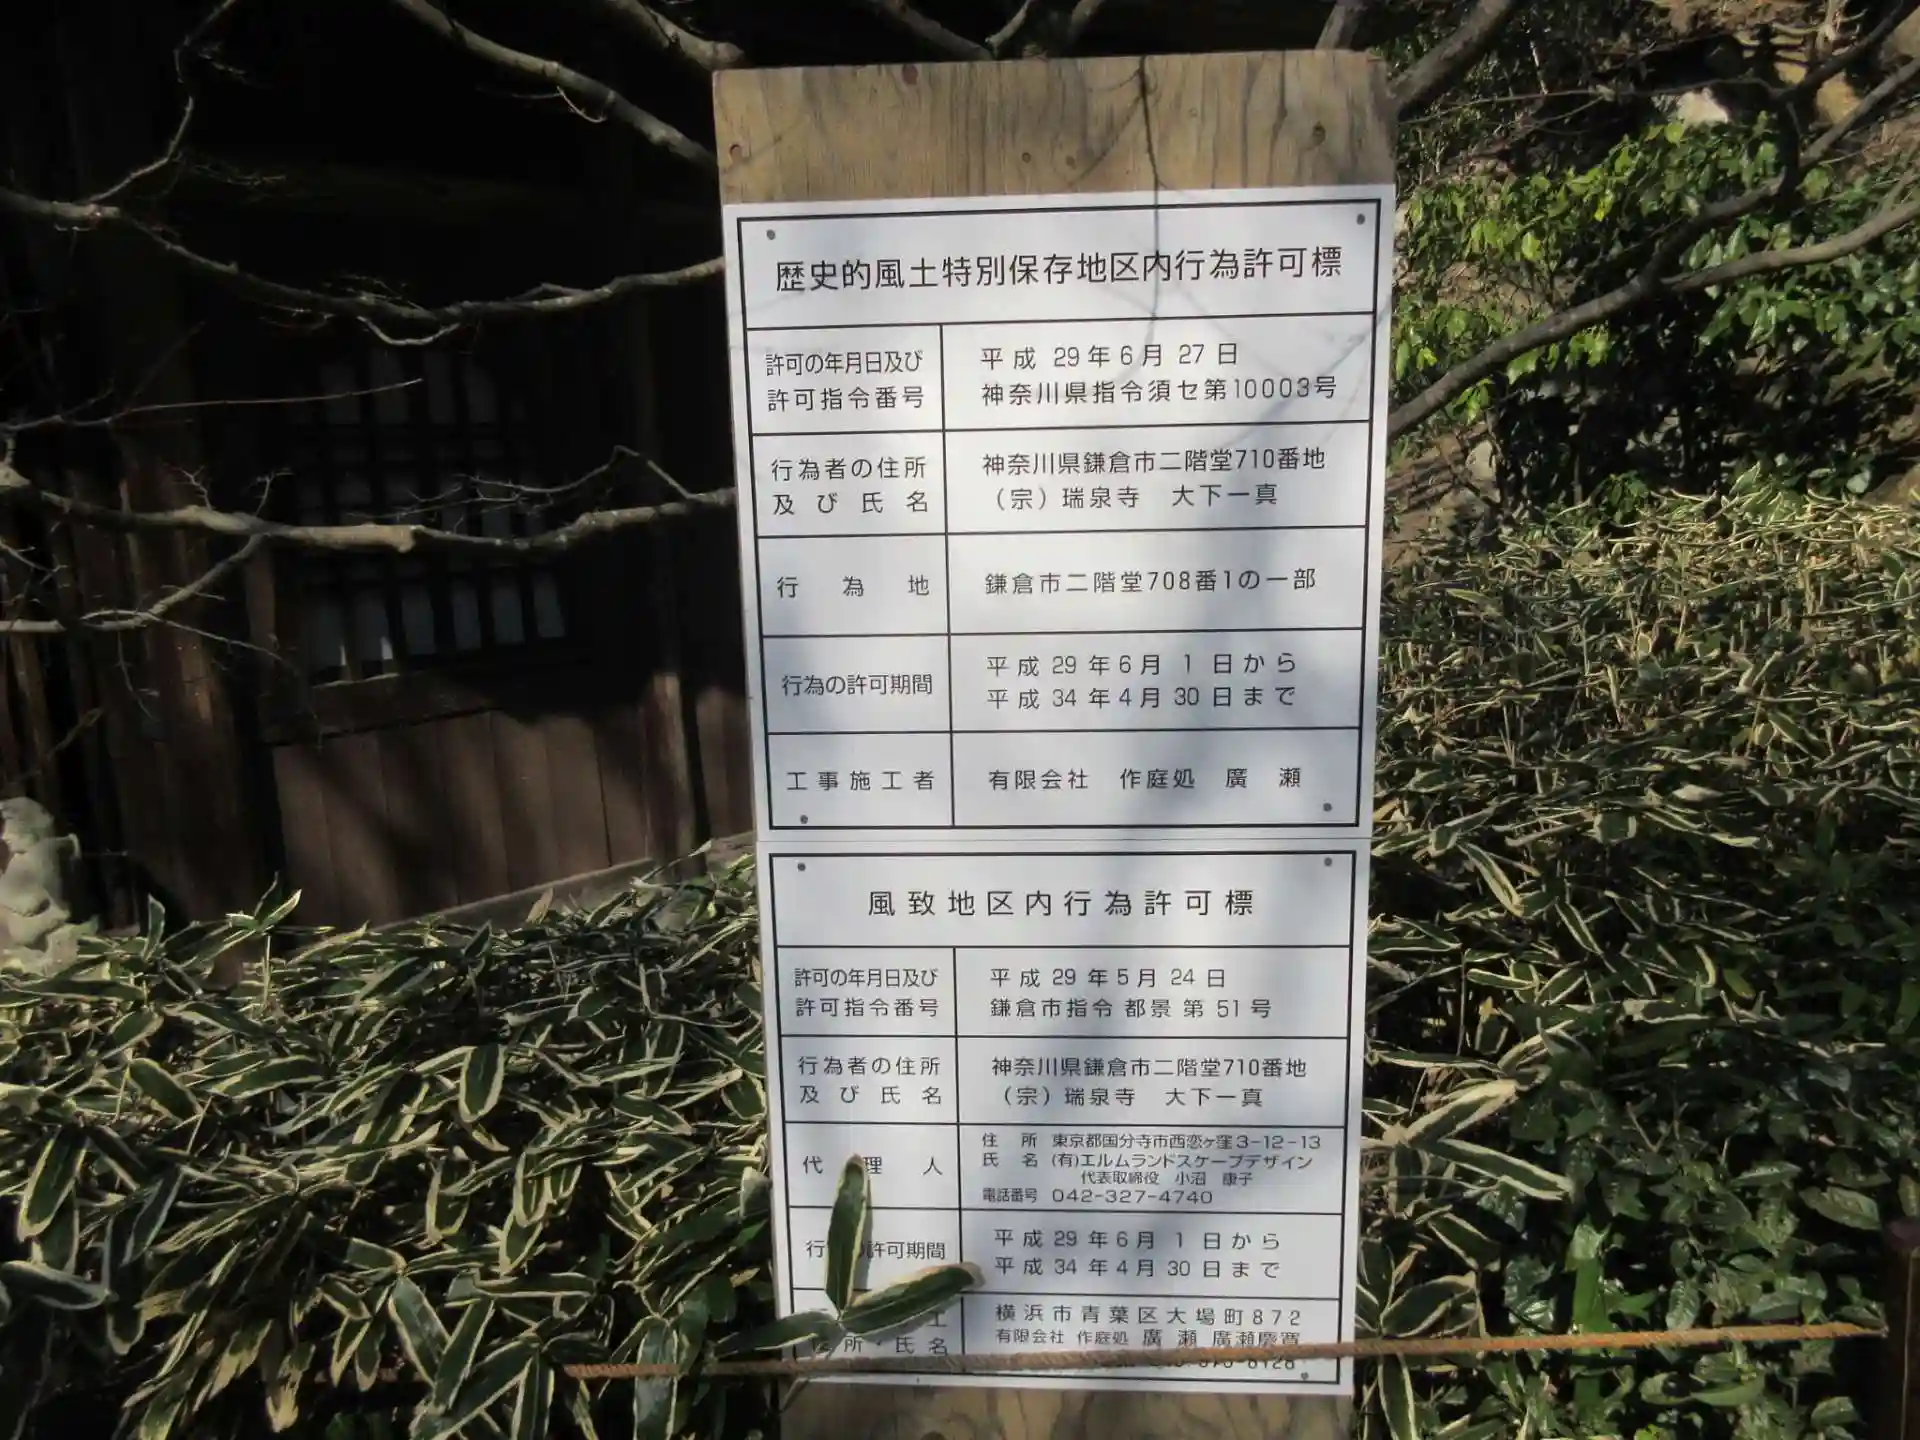 歴史的風土特別保存地区内行為許可標
許可の年月日及び
許可指令番号
平成 29年6月 27日
神奈川県指令須セ第10003号
行為者の住所
及び氏名
神奈川県鎌倉市二階堂710番地
（宗）瑞泉寺 大下一真
行為地
鎌倉市二階堂708番1の一部
行為の許可期間
平成 29年6月 1日から
平成 34年4月 30日まで
工事施工者
有限会社 作庭処 廣瀬
風致地区内行為許可標
許可の年月日及び
許可指令番号
平成 29年5月 24日
鎌倉市指令 都景 第 51号
行為者の住所
及び氏名
神奈川県鎌倉市二階堂710番地
（宗）瑞泉寺 大下一真
代理人
住所 東京都国分寺市西恋ヶ窪3-12-13
氏名 (有)エルムランドスケープデザイン
代表取締役 小沼 康子
電話番号 042-327-4740
行 の許可期間
平成 29年6月 1日から
平成 34年4月 30日まで
所・氏名
横浜市青葉区大場町872
有限会社 作庭処 廣瀬 廣瀬慶寛